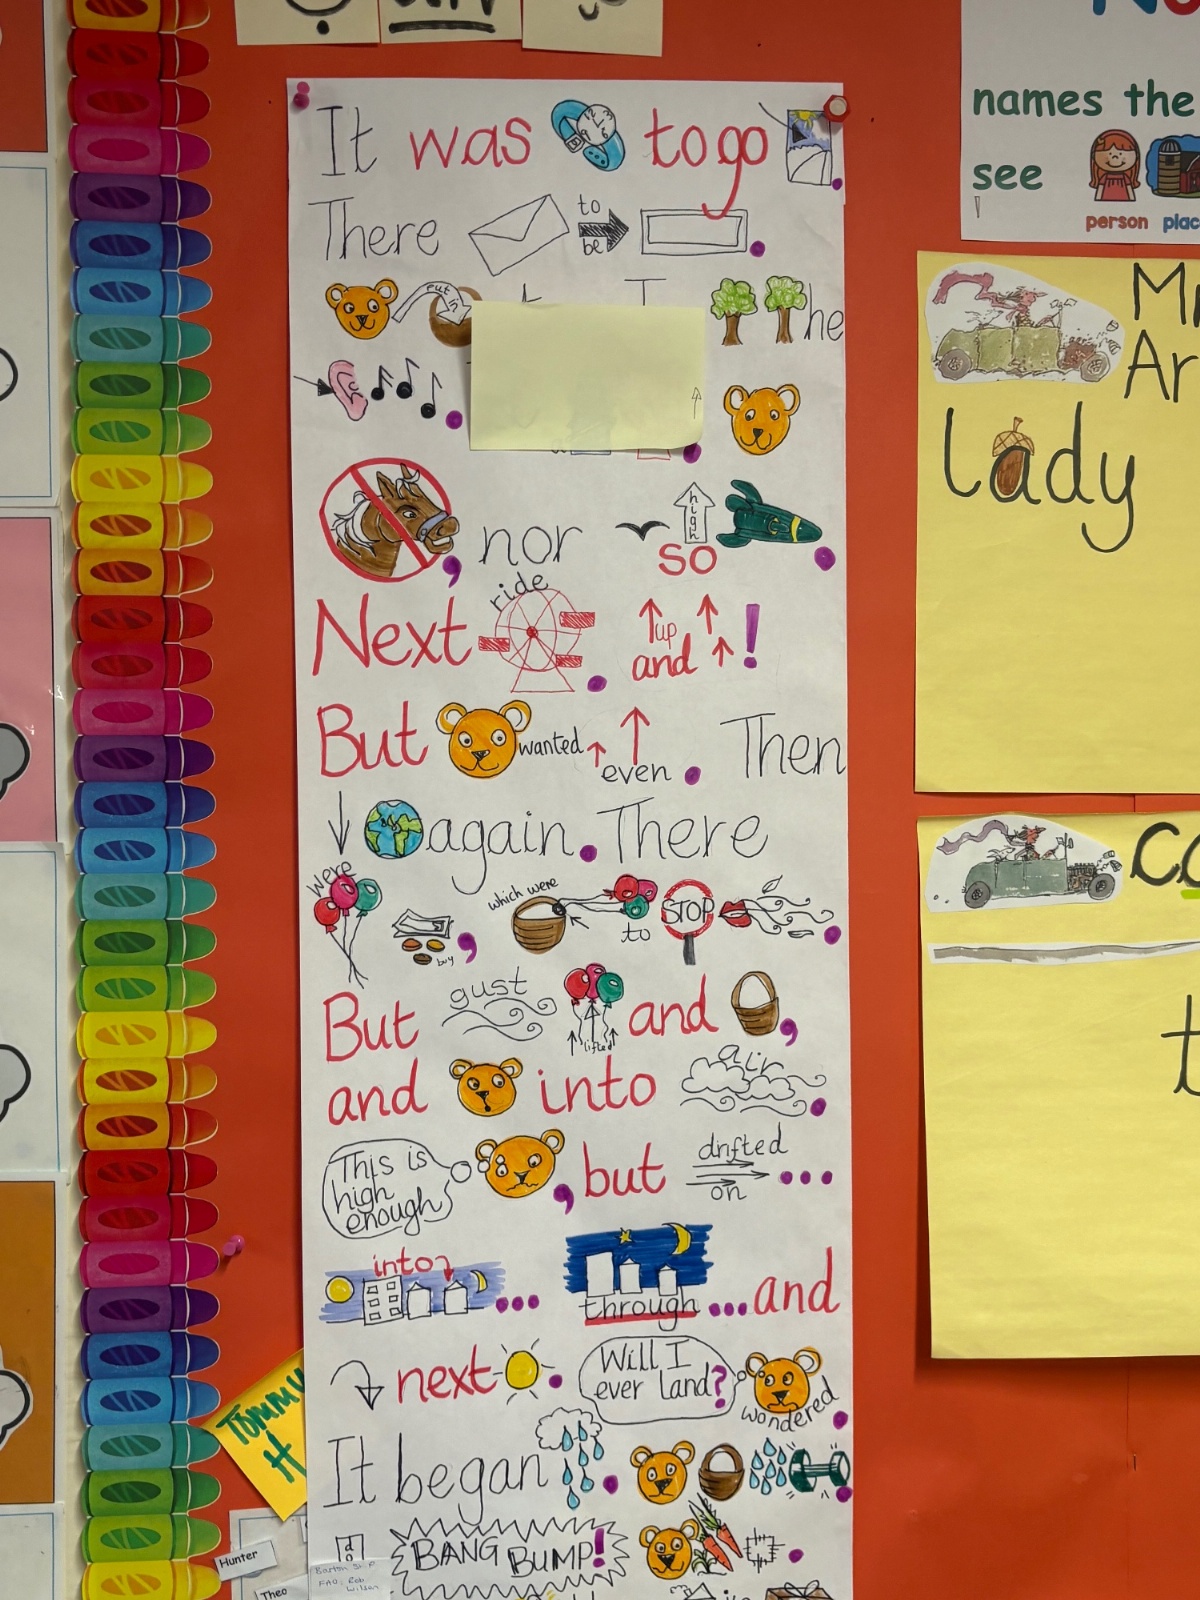 names the
see
person plac
It was to go
There to be
put in
he
lady
high
nor so
ride
Next up and !
But wanted even . Then
again. There
were
buy , which were to STOP .
gust
But lifted and ,
air
and into .
This is high enough , but drifted on ...
into ... through ... and
next . Will I ever land? wondered .
It began .
BANG BUMP! .
Tommy H
Hunter
Theo
Barton St. P